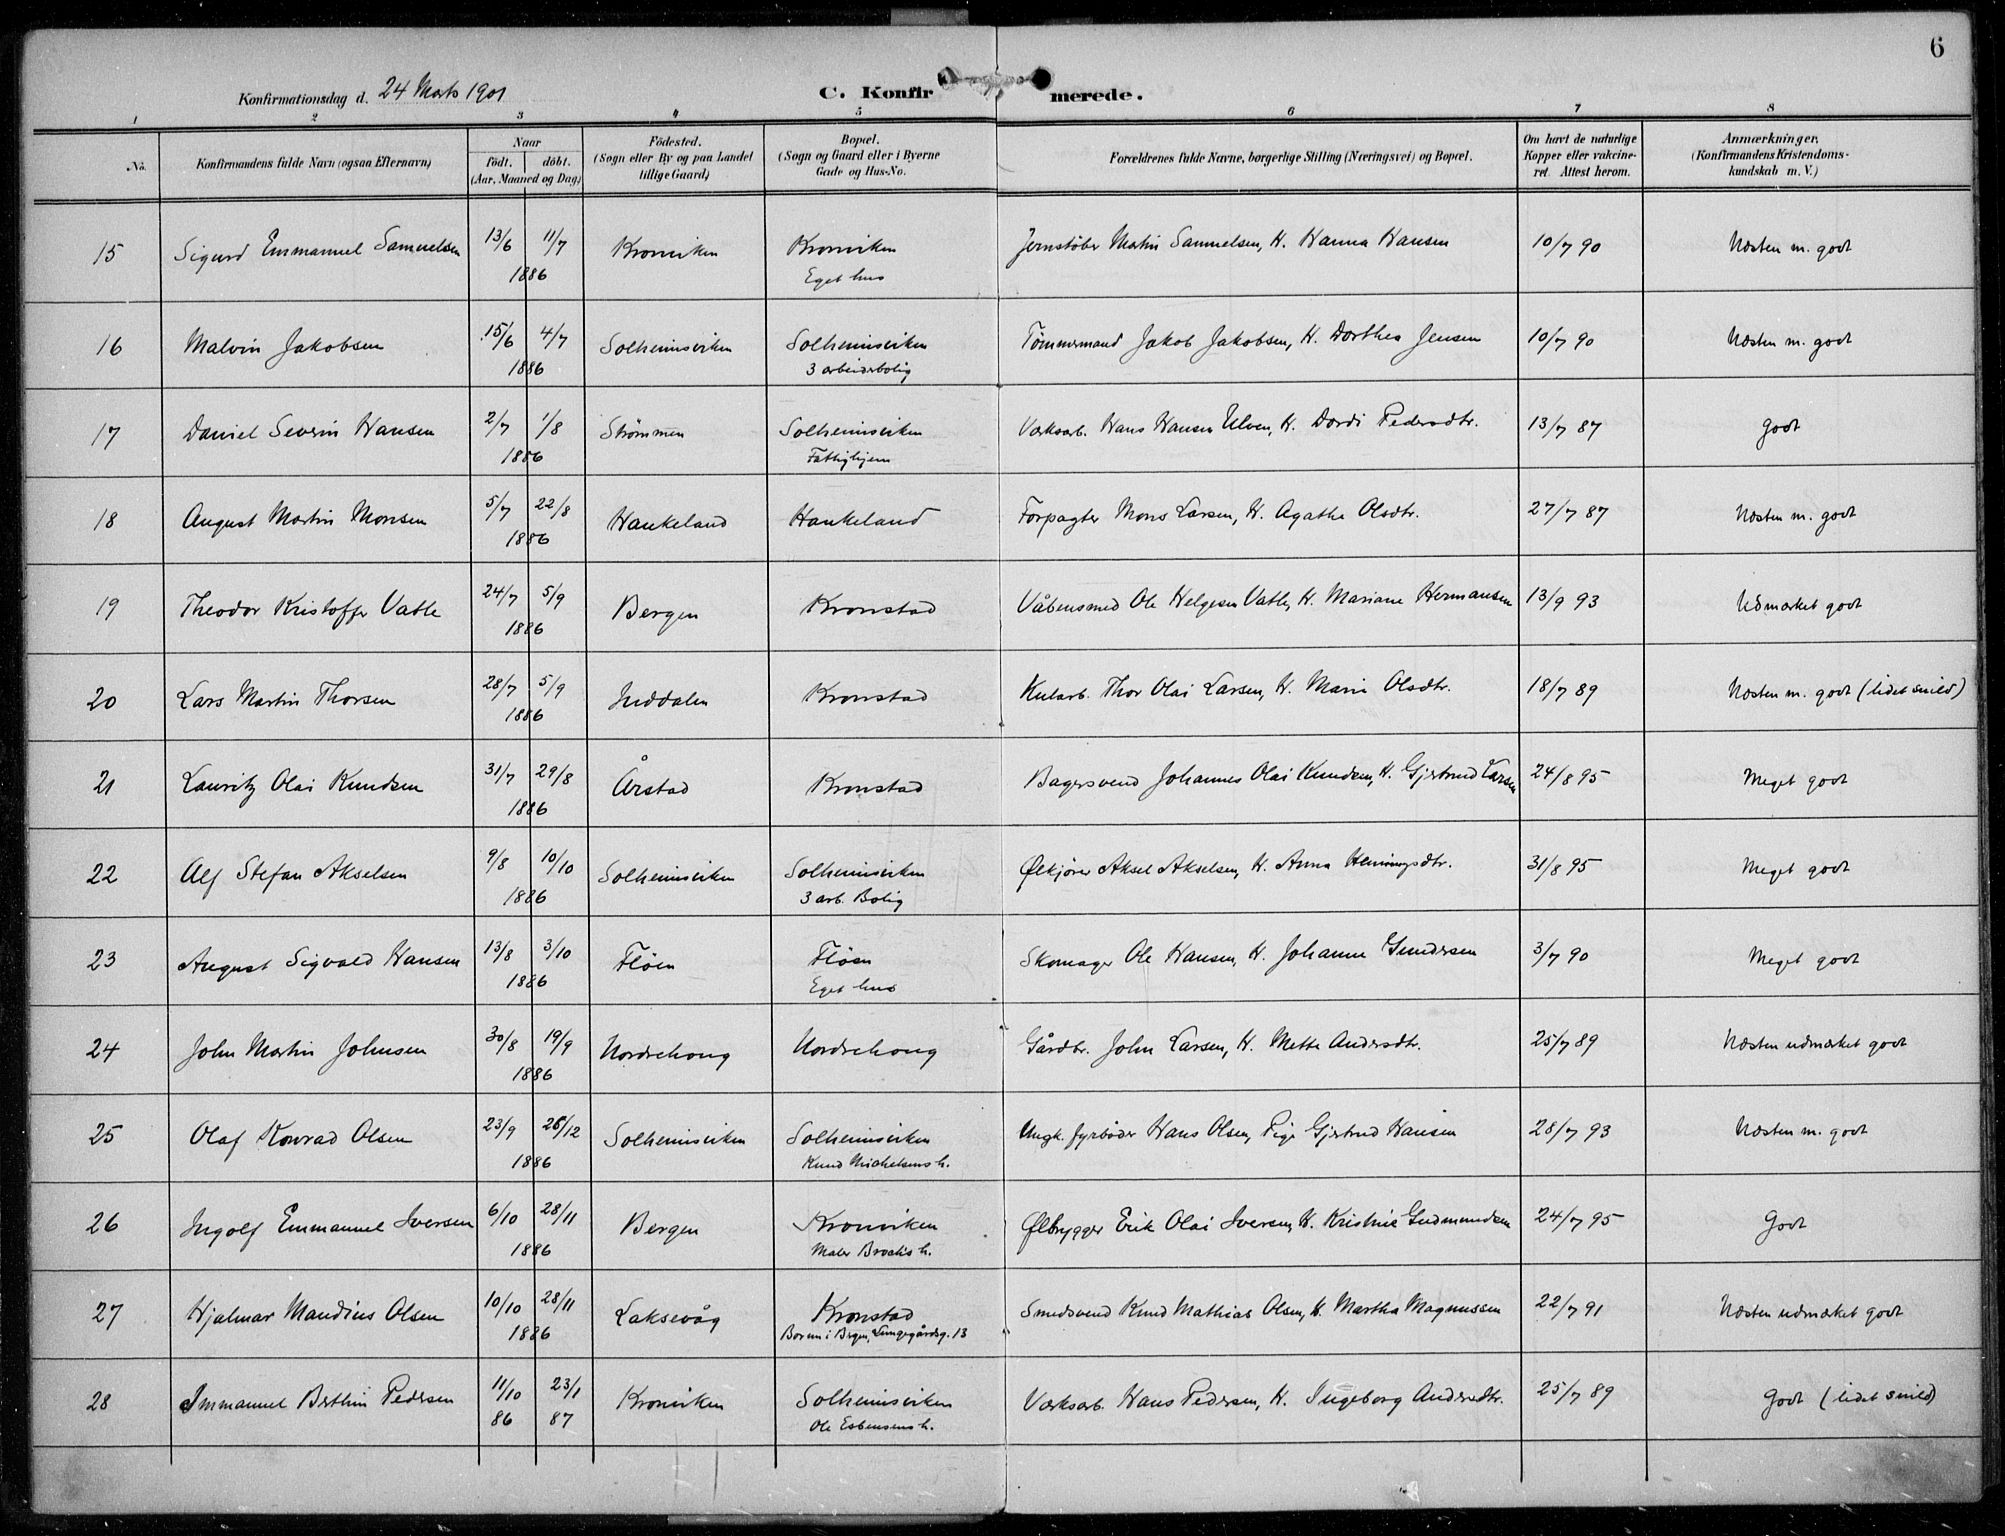 6
Konfirmationsdag d. 24 Marts 1901
C. Konfirmerede.
1 2 3 4 5 6 7 8
No. Konfirmandens fulde Navn (ogsaa Efternavn) Naar födt. döbt. (Aar, Maaned og Dag) Födested. (Sogn eller By og paa Landet tillige Gaard) Bopæl. (Sogn og Gaard eller i Byerne Gade og Hus-No. Forældrenes fulde Navne, borgerlige Stilling (Næringsvei) og Bopæl. Om havt de naturlige Kopper eller vakcineret. Attest herom. Anmærkninger. (Konfirmandens Kristendomskundskab m. V.)
15 Sigurd Emmanuel Samuelsen 13/6 11/7 Kronviken Kronviken Jernstøber Martin Samuelsen, H. Hanna Hansen 10/7 90 Næsten m. godt
1886 Eget hus
16 Malvin Jakobsen 15/6 4/7 Solheimsviken Solheimsviken Tømmermand Jakob Jakobsen, H. Dorthea Jensen 10/7 90 Næsten m. godt
1886 3 arbeiderbolig
17 Daniel Severin Hansen 2/7 1/8 Strømmen Solheimsviken Værksarb. Hans Hansen Ulven, H. Dordi Pedersdtr. 13/7 87 Godt
1886 Fattighjem
18 August Martin Monsen 5/7 22/8 Haukeland Haukeland Forpagter Mons Larsen, H. Agathe Olsdtr. 27/7 87 Næsten m. godt
1886
19 Theodor Kristoffer Vatle 24/7 5/9 Bergen Kronstad Våbensmed Ole Helgesen Vatle, H. Mariane Hermansen 13/9 93 Udmærket godt
1886
20 Lars Martin Thorsen 28/7 5/9 Inddalen Kronstad Kularb. Thor Olai Larsen, H. Marie Olsdtr. 18/7 89 Næsten m. godt (lidet snild)
1886
21 Lauritz Olai Knudsen 31/7 29/8 Årstad Kronstad Bagersvend Johannes Olai Knudsen, H. Gjertrud Larsen 24/8 95 Meget godt
1886
22 Alf Stefan Akselsen 9/8 10/10 Solheimsviken Solheimsviken Ølkjører Aksel Akselsen, H. Anna Henningsdtr. 31/8 95 Meget godt
1886 3 arb. Bolig
23 August Sigvald Hansen 13/8 3/10 Fløen Fløen Skomager Ole Hansen, H. Johanne Gundersen 3/7 90 Meget godt
1886 Eget hus
24 John Martin Johnsen 30/8 19/9 Nordrehoug Nordrehoug Gårdbr. John Larsen, H. Mette Andersdtr. 25/7 89 Næsten udmærket godt
1886
25 Olaf Konrad Olsen 23/9 26/12 Solheimsviken Solheimsviken Ungk. fyrbøder Hans Olsen, Pige Gjertrud Hansen 28/7 93 Næsten m. godt
1886 Knud Michelsens h.
26 Ingolf Emmanuel Iversen 6/10 28/11 Bergen Kronviken Ølbrygger Erik Olai Iversen, H. Kristine Gudmundsen 24/7 95 Godt
1886 Maler Brochs h.
27 Hjalmar Mandius Olsen 10/10 28/11 Laksevåg Kronstad Smedsvend Knud Mathias Olsen, H. Martha Magnussen 22/7 91 Næsten udmærket godt
1886 Bor nu i Bergen, Lungegårdsg. 13
28 Immanuel Berthin Pedersen 11/10 23/1 Kronviken Solheimsviken Værksarb. Hans Pedersen, H. Ingeborg Andersdtr. 25/7 89 Godt (lidet snild)
86 87 Ole Esbensens h.